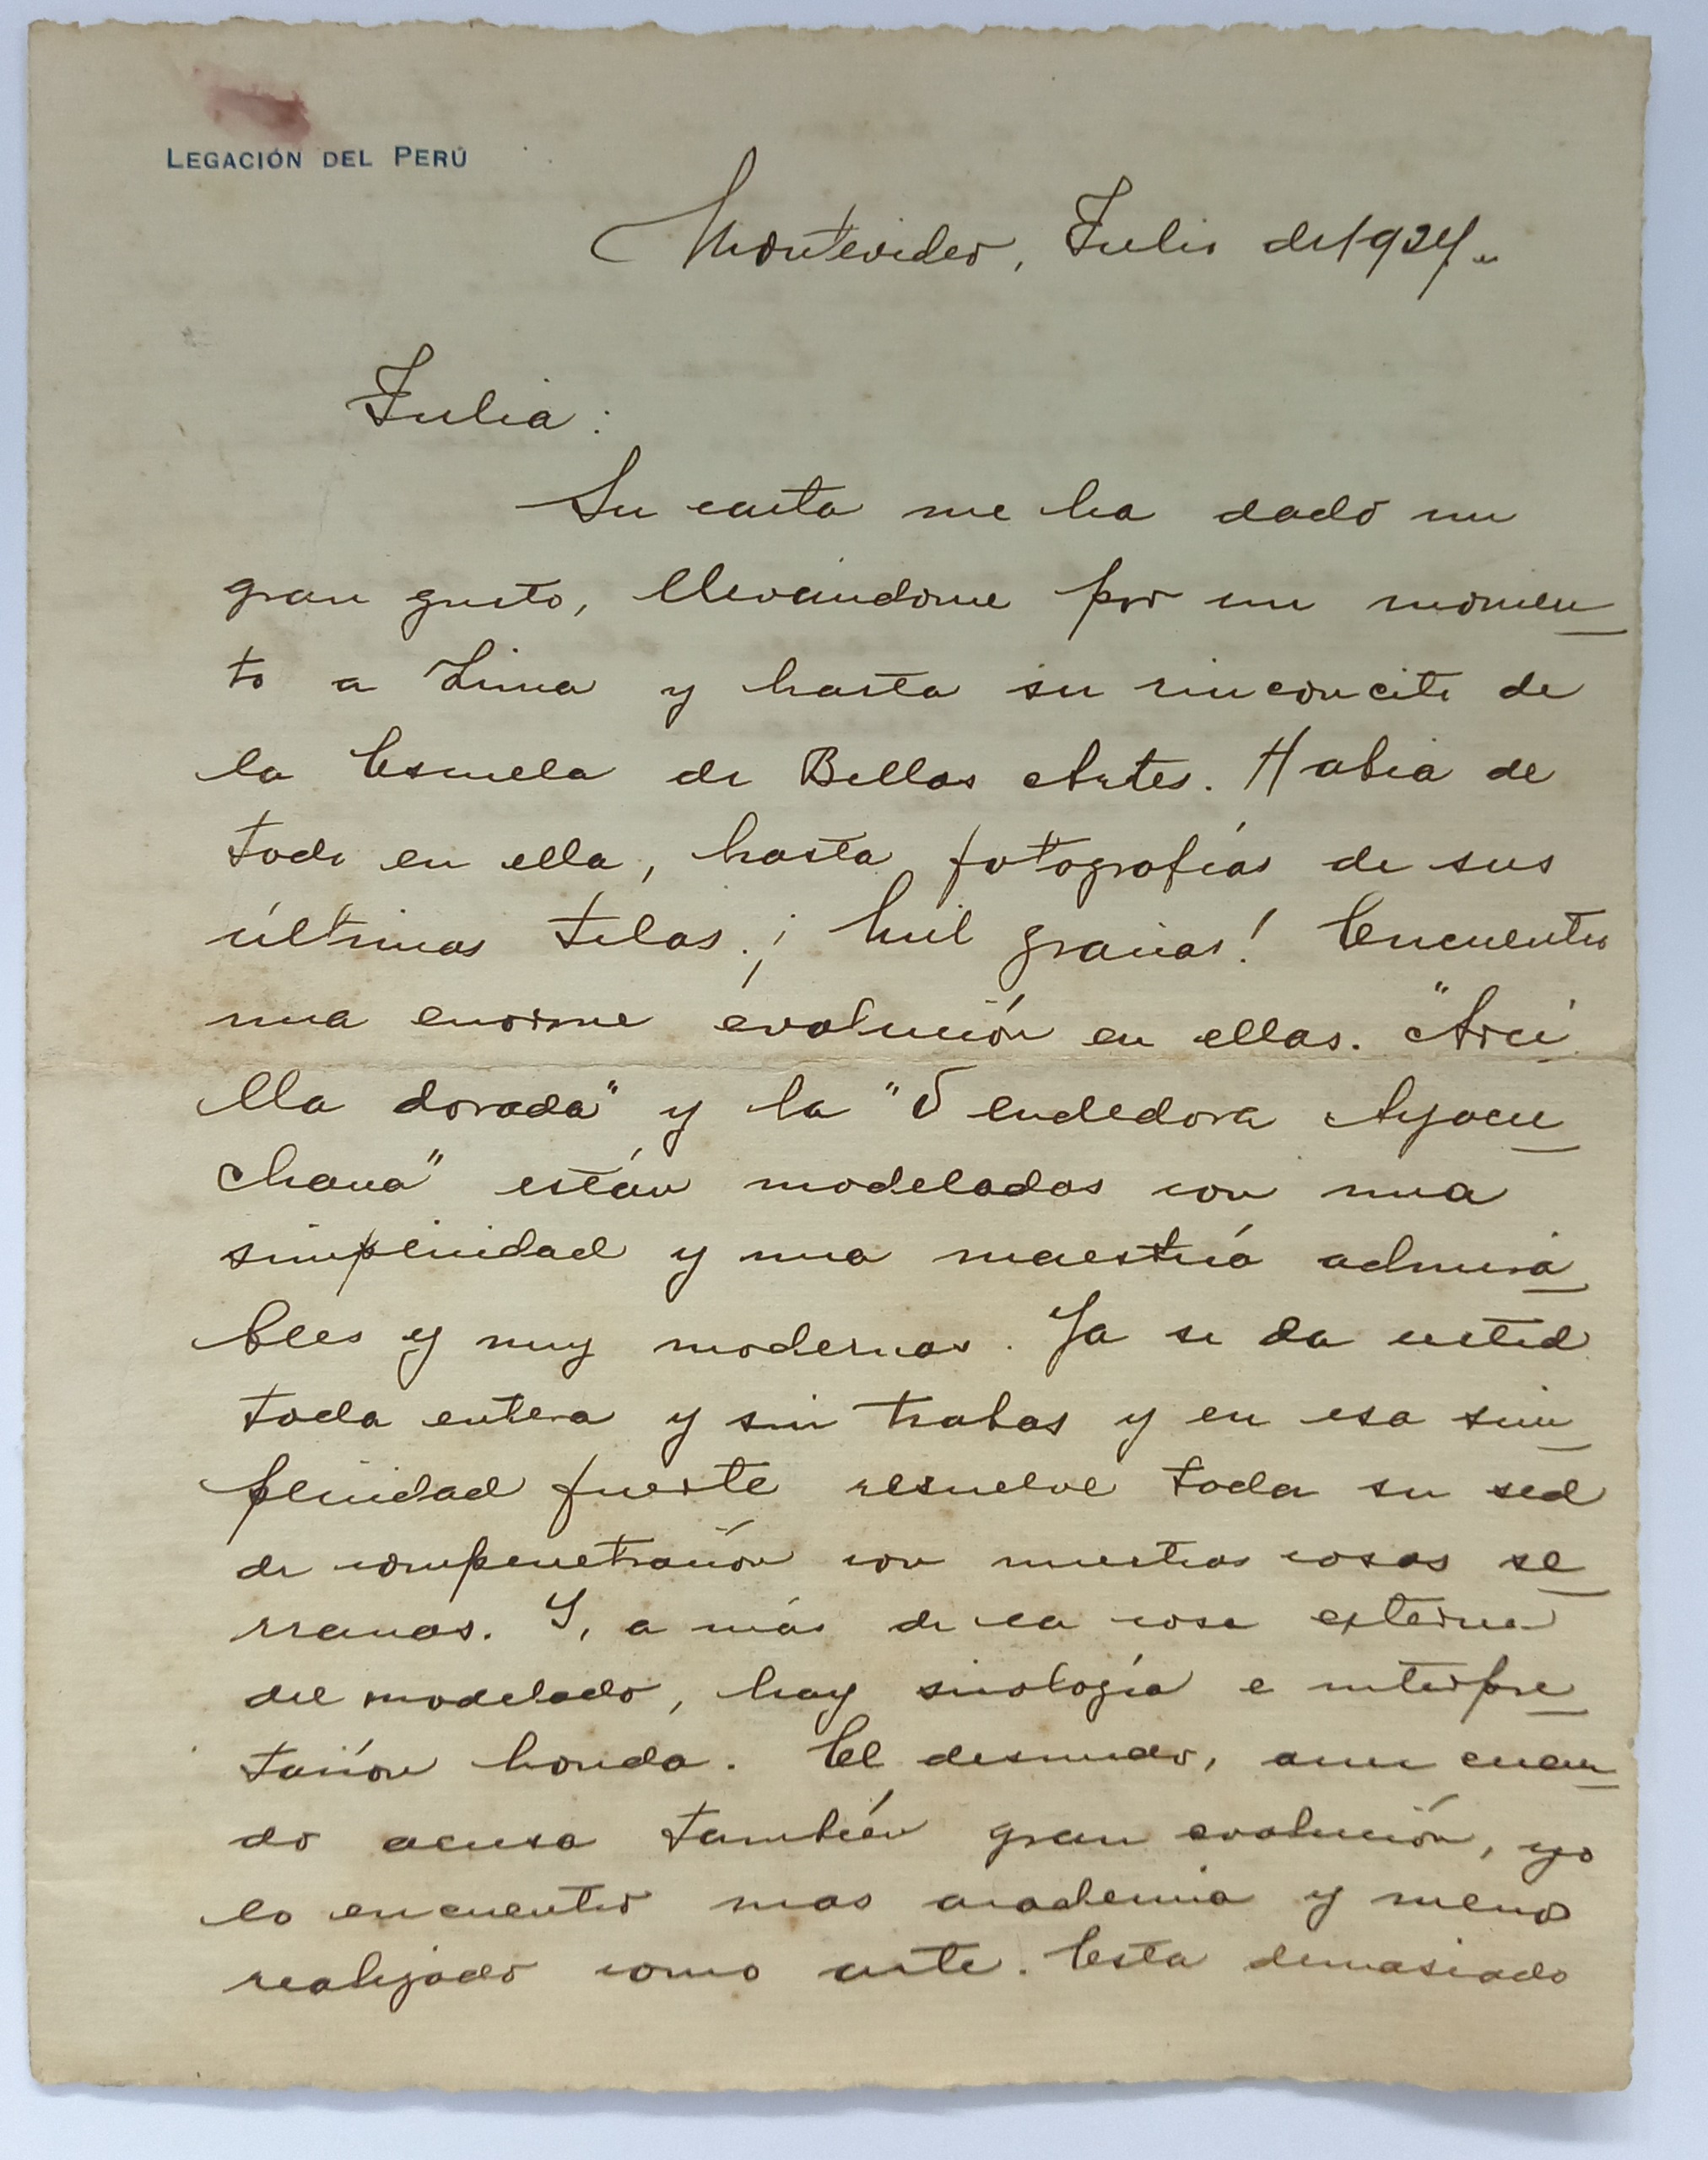 LEGACIÓN DEL PERÚ
Montevideo, Julio de 1924.
Julia:
Su carta me ha dado un
gran gusto, llevándome por un momen
to a Lima y hasta su rinconcito de
la Escuela de Bellas Artes. Había de
todo en ella, hasta fotografías de sus
últimas telas. ¡Mil gracias! Encuentro
una enorme evolución en ellas. "Arci
lla dorada" y la "Vendedora Ayacu
chana" están modeladas con una
simplicidad y una maestría admira
bles y muy modernas. Ya se da usted
toda entera y sin trabas y en esa sim
plicidad fuerte resuelve toda su sed
de compenetración con nuestras cosas se
rranas. Y, a más de la cosa externa
del modelado, hay sicología e interpre
tación honda. El desnudo, aun cuan
do acusa también gran evolución, yo
lo encuentro mas academia y menos
realizado como arte. Esta demasiado